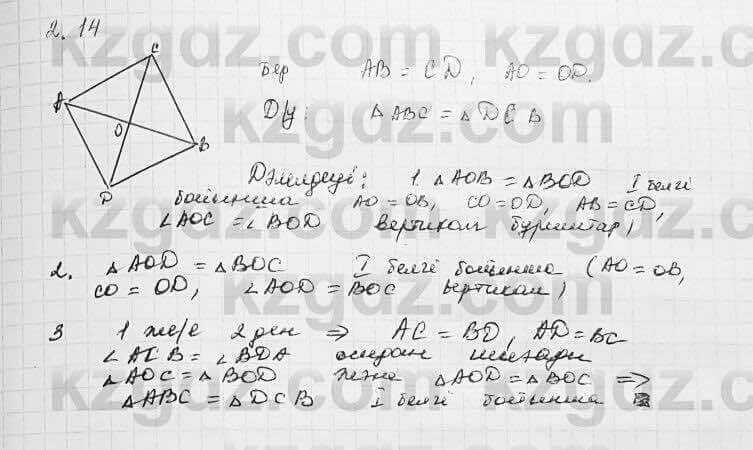 2.14
C
A
O
B
D
Бер AB = CD, AO = OD.
D/у: △ABC = △DCB
Дәлелдеуі: 1. △AOB = △BOD I белгі
бойынша AO = OB, CO = OD, AB = CD,
∠AOC = ∠BOD вертикал бұрыштар)
2. △AOD = △BOC I белгі бойынша (AO = OB,
CO = OD, ∠AOD = BOC вертикал)
3 1 және 2 ден ⇒ AC = BD, AD = BC
∠ACB = ∠BDA шығады
△AOC = △BOD және △AOD = △BOC ⇒
△ABC = △DCB I белгі бойынша
kzgdz.com